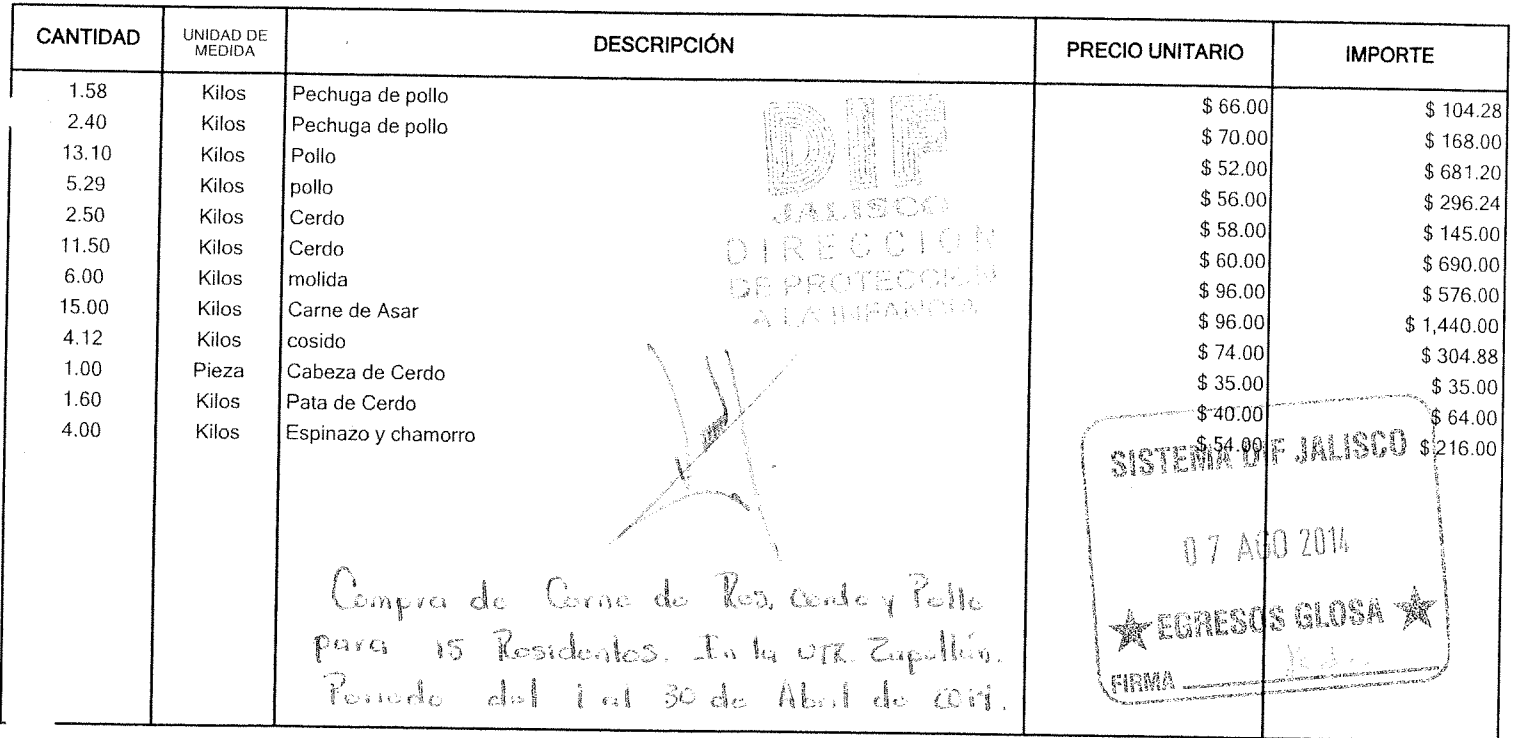 CANTIDAD UNIDAD DE MEDIDA DESCRIPCIÓN PRECIO UNITARIO IMPORTE
1.58 Kilos Pechuga de pollo $ 66.00 $ 104.28
2.40 Kilos Pechuga de pollo $ 70.00 $ 168.00
13.10 Kilos Pollo $ 52.00 $ 681.20
5.29 Kilos pollo $ 56.00 $ 296.24
2.50 Kilos Cerdo $ 58.00 $ 145.00
11.50 Kilos Cerdo $ 60.00 $ 690.00
6.00 Kilos molida $ 96.00 $ 576.00
15.00 Kilos Carne de Asar $ 96.00 $ 1,440.00
4.12 Kilos cosido $ 74.00 $ 304.88
1.00 Pieza Cabeza de Cerdo $ 35.00 $ 35.00
1.60 Kilos Pata de Cerdo $ 40.00 $ 64.00
4.00 Kilos Espinazo y chamorro $ 54.00 $ 216.00
DIF
JALISCO
DIRECCION
DE PROTECCION
A LA INFANCIA
SISTEMA DIF JALISCO
07 AGO 2014
EGRESOS GLOSA
FIRMA
Compra de Carne de Res, Cerdo y Pollo
para 15 Residentes. En la UTR
Periodo del 1 al 30 de Abril de